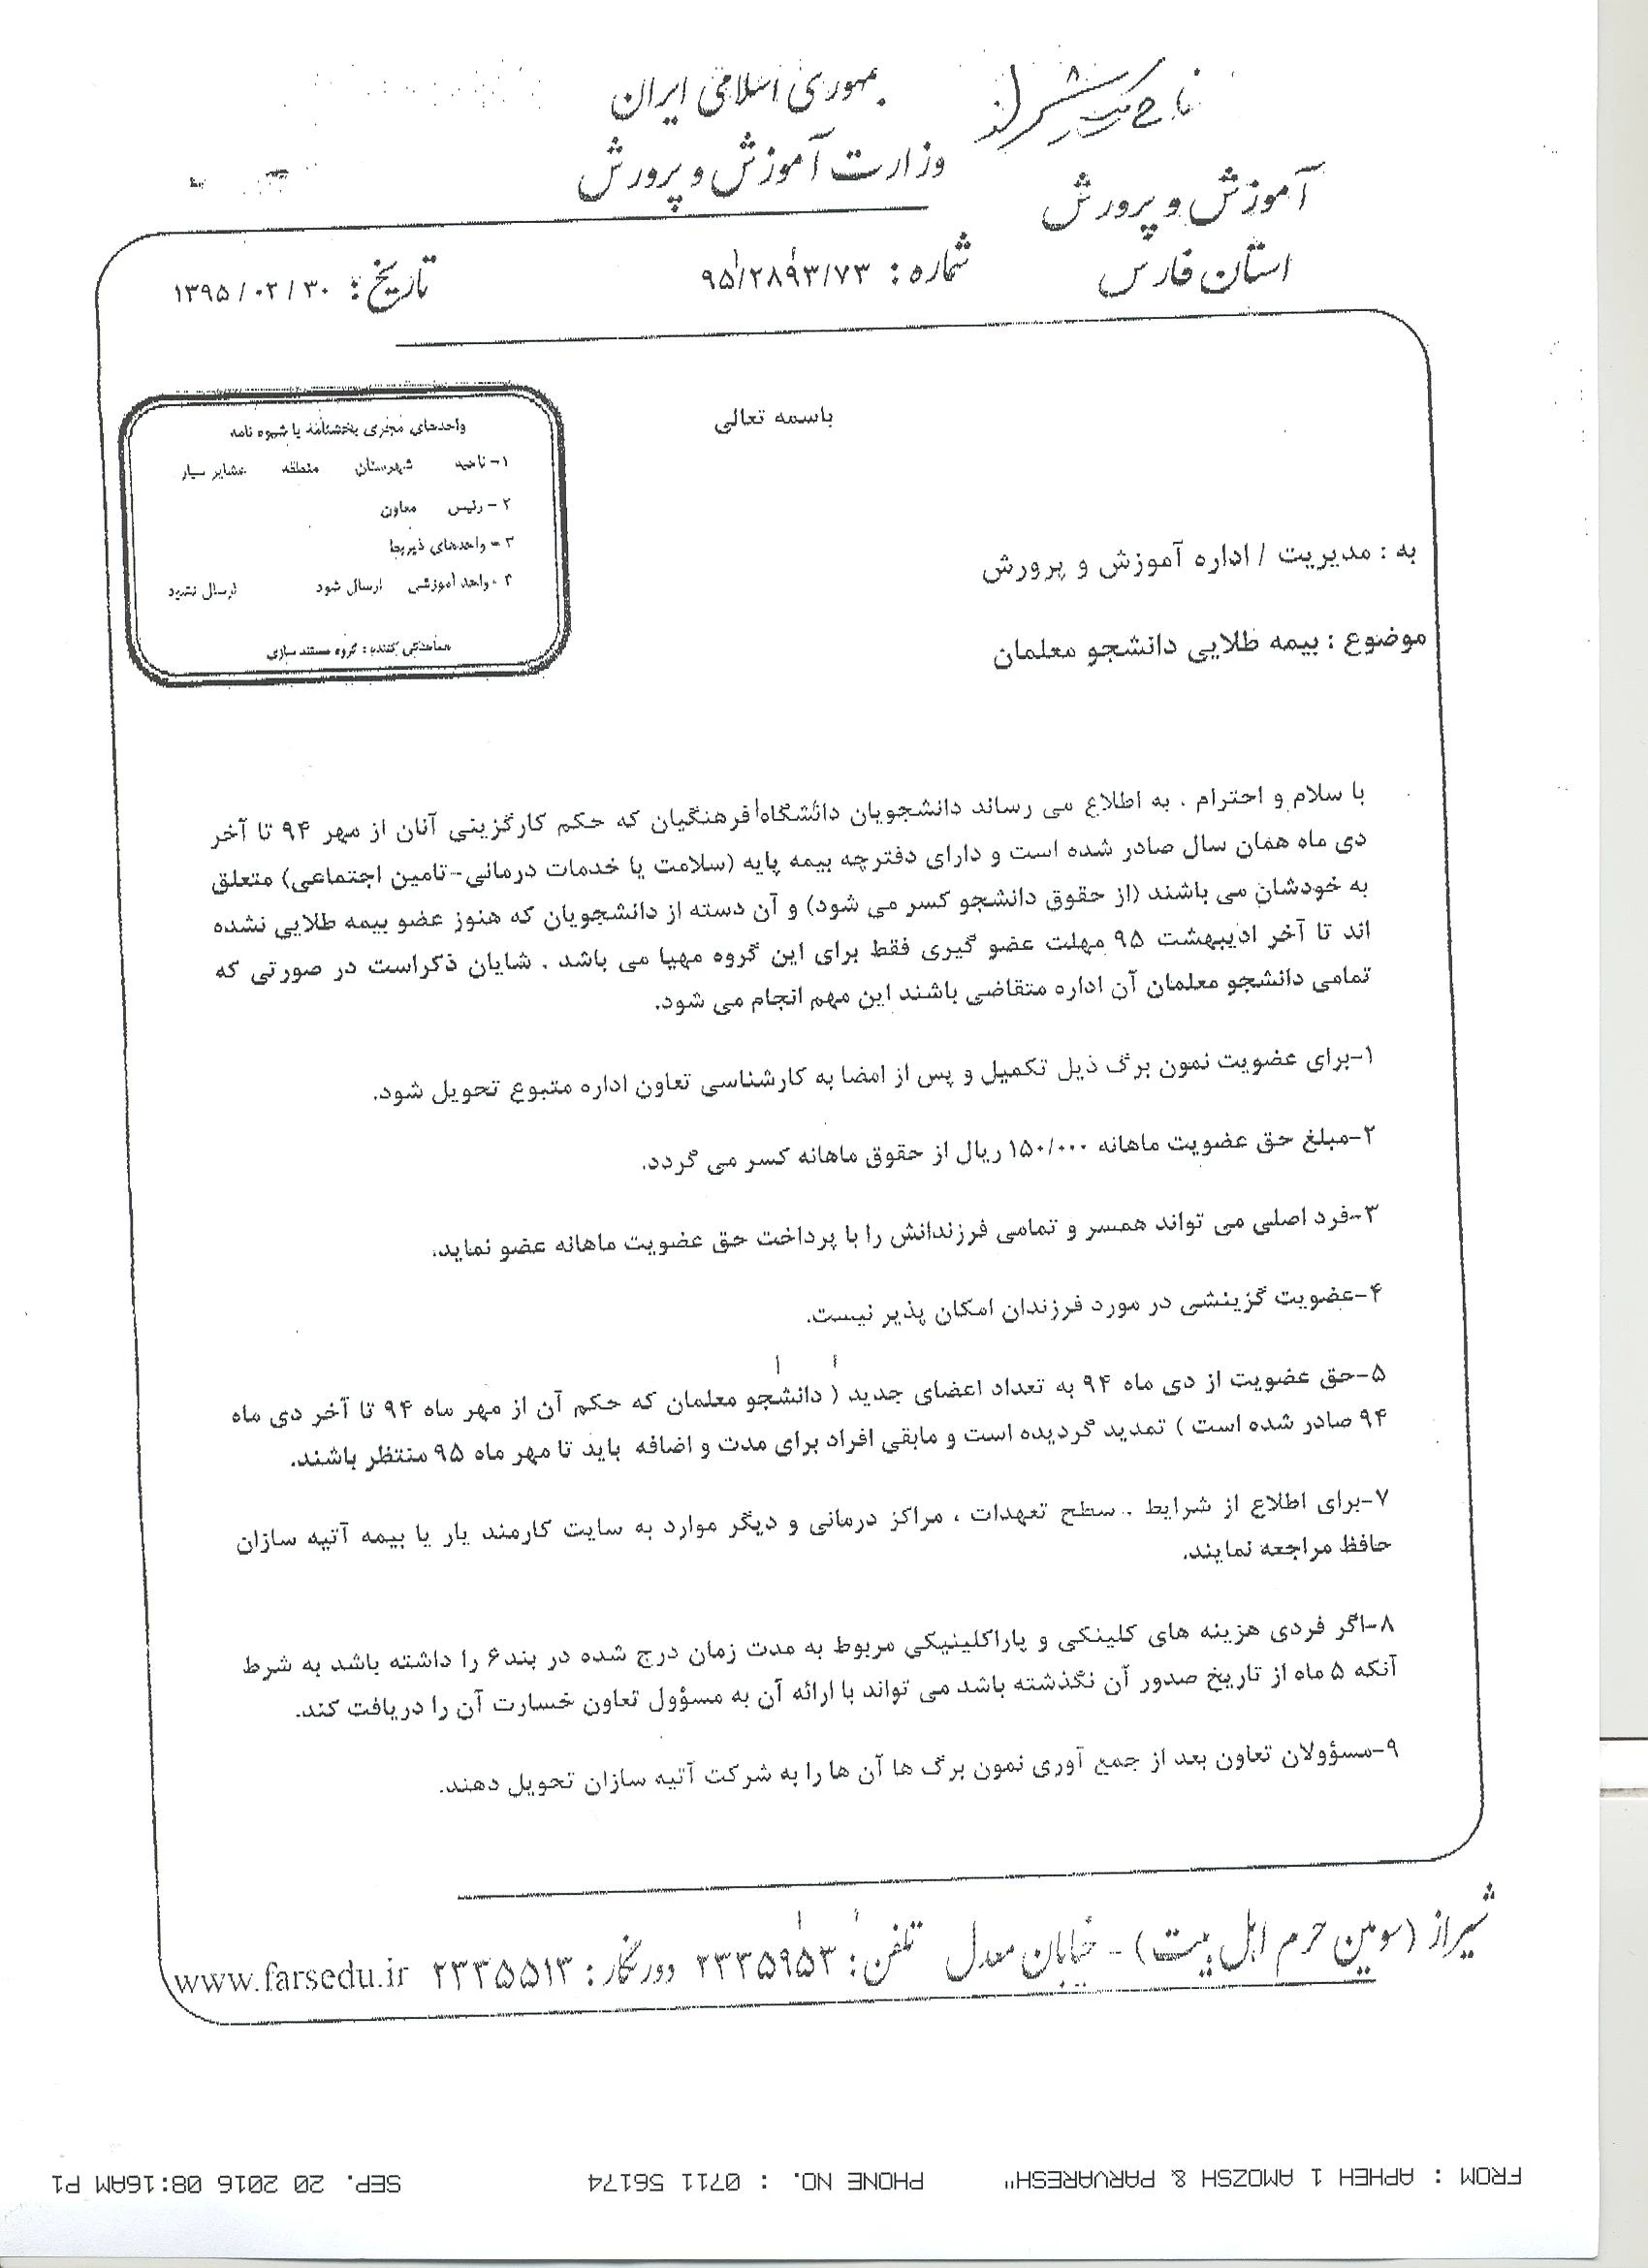 جمهوری اسلامی ایران
وزارت آموزش و پرورش
آموزش و پرورش
استان فارس
شماره : ۹۵/۲۸۹۳/۷۳
تاریخ : ۱۳۹۵/۰۲/۳۰
باسمه تعالی
واحدهای مجری بخشنامه یا شیوه نامه
۱- ناحیه شهرستان منطقه عشایر سیار
۲ - رئیس معاون
۳ - واحدهای ذیربط
۴ - واحد آموزشی ارسال شود ارسال نشود
هماهنگی کننده : گروه مستند سازی
به : مدیریت / اداره آموزش و پرورش
موضوع : بیمه طلایی دانشجو معلمان
با سلام و احترام . به اطلاع می رساند دانشجویان دانشگاه فرهنگیان که حکم کارگزینی آنان از مهر ۹۴ تا آخر
دی ماه همان سال صادر شده است و دارای دفترچه بیمه پایه (سلامت یا خدمات درمانی-تامین اجتماعی) متعلق
به خودشان می باشند (از حقوق دانشجو کسر می شود) و آن دسته از دانشجویان که هنوز عضو بیمه طلایی نشده
اند تا آخر اردیبهشت ۹۵ مهلت عضو گیری فقط برای این گروه مهیا می باشد . شایان ذکراست در صورتی که
تمامی دانشجو معلمان آن اداره متقاضی باشند این مهم انجام می شود.
۱-برای عضویت نمون برگ ذیل تکمیل و پس از امضا به کارشناسی تعاون اداره متبوع تحویل شود.
۲-مبلغ حق عضویت ماهانه ۱۵۰/۰۰۰ ریال از حقوق ماهانه کسر می گردد.
۳-فرد اصلی می تواند همسر و تمامی فرزندانش را با پرداخت حق عضویت ماهانه عضو نماید.
۴-عضویت گزینشی در مورد فرزندان امکان پذیر نیست.
۵-حق عضویت از دی ماه ۹۴ به تعداد اعضای جدید ( دانشجو معلمان که حکم آن از مهر ماه ۹۴ تا آخر دی ماه
۹۴ صادر شده است ) تمدید گردیده است و مابقی افراد برای مدت و اضافه باید تا مهر ماه ۹۵ منتظر باشند.
۷-برای اطلاع از شرایط . سطح تعهدات ، مراکز درمانی و دیگر موارد به سایت کارمند یار یا بیمه آتیه سازان
حافظ مراجعه نمایند.
۸-اگر فردی هزینه های کلینکی و پاراکلینیکی مربوط به مدت زمان درج شده در بند۶ را داشته باشد به شرط
آنکه ۵ ماه از تاریخ صدور آن نگذشته باشد می تواند با ارائه آن به مسؤول تعاون خسارت آن را دریافت کند.
۹-مسؤولان تعاون بعد از جمع آوری نمون برگ ها آن ها را به شرکت آتیه سازان تحویل دهند.
شیراز (سومین حرم اہل بیت) - خیابان معدل تلفن : ۲۳۳۵۹۵۳ دورنگار : ۲۳۳۵۵۱۳ www.farsedu.ir
FROM : APHEH 1 AMOZSH & PARVARESH" PHONE NO. : 0711 56174 SEP. 20 2016 08:16AM P1